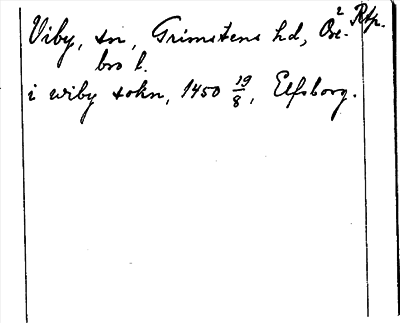 Viby, sn, Grimstens hd, Öre-
bro l.
2 Rtp.
i wiby sokn, 1450 19/8, Elfsborg.